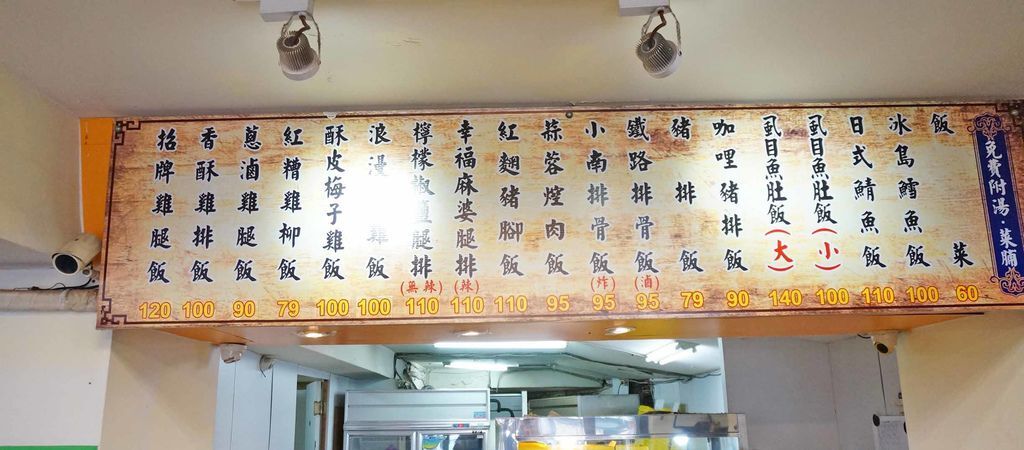 免費附湯·菜脯
飯菜 60
冰島鱈魚飯 100
日式鯖魚飯 110
虱目魚肚飯(小) 100
虱目魚肚飯(大) 140
咖哩豬排飯 90
豬排飯 79
鐵路排骨飯(滷) 95
小南排骨飯(炸) 95
蒜蓉焢肉飯 95
紅麴豬腳飯 110
幸福麻婆腿排(辣) 110
檸檬椒鹽腿排(無辣) 110
浪漫 雞飯 100
酥皮梅子雞飯 100
紅糟雞柳飯 79
蔥滷雞腿飯 90
香酥雞排飯 100
招牌雞腿飯 120